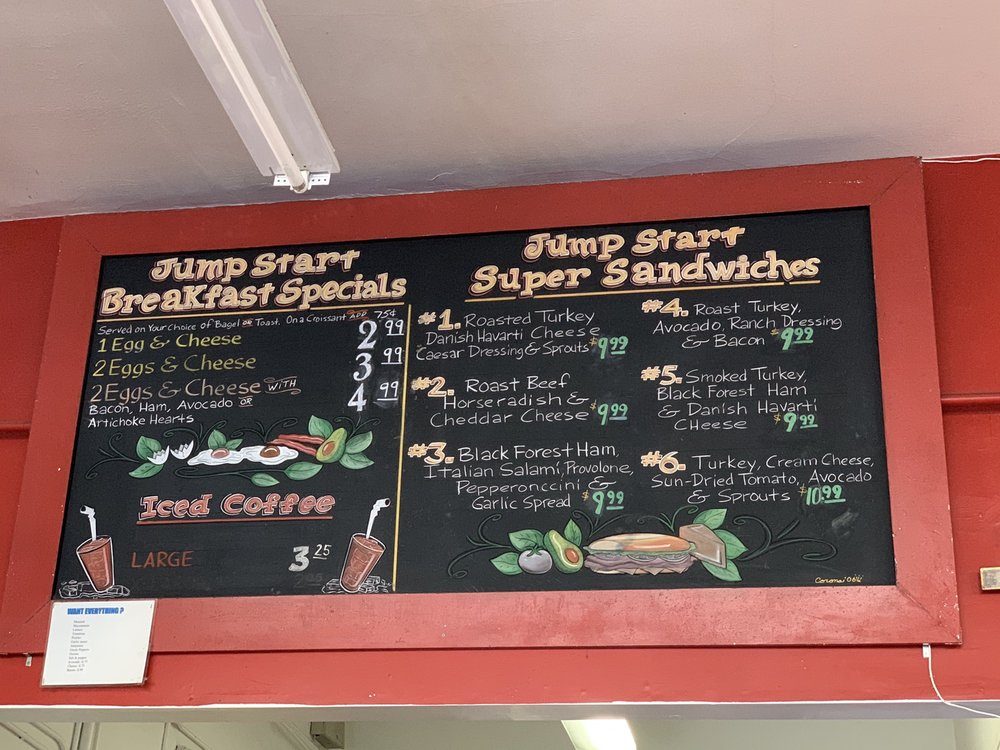 Jump Start
Breakfast Specials
Served on Your Choice of Bagel OR Toast. On a Croissant ADD 75¢
1 Egg & Cheese 2.99
2 Eggs & Cheese 3.99
2 Eggs & Cheese WITH 4.99
Bacon, Ham, Avocado OR
Artichoke Hearts
Iced Coffee
LARGE 3.25
Jump Start
Super Sandwiches
#1. Roasted Turkey
Danish Havarti Cheese
Caesar Dressing & Sprouts $9.99
#2. Roast Beef
Horseradish &
Cheddar Cheese $9.99
#3. Black Forest Ham,
Italian Salami, Provolone,
Pepperonccini &
Garlic Spread $9.99
#4. Roast Turkey,
Avocado, Ranch Dressing
& Bacon $9.99
#5. Smoked Turkey,
Black Forest Ham
& Danish Havarti
Cheese $9.99
#6. Turkey, Cream Cheese,
Sun-Dried Tomato, Avocado
& Sprouts $10.99
WANT EVERYTHING?